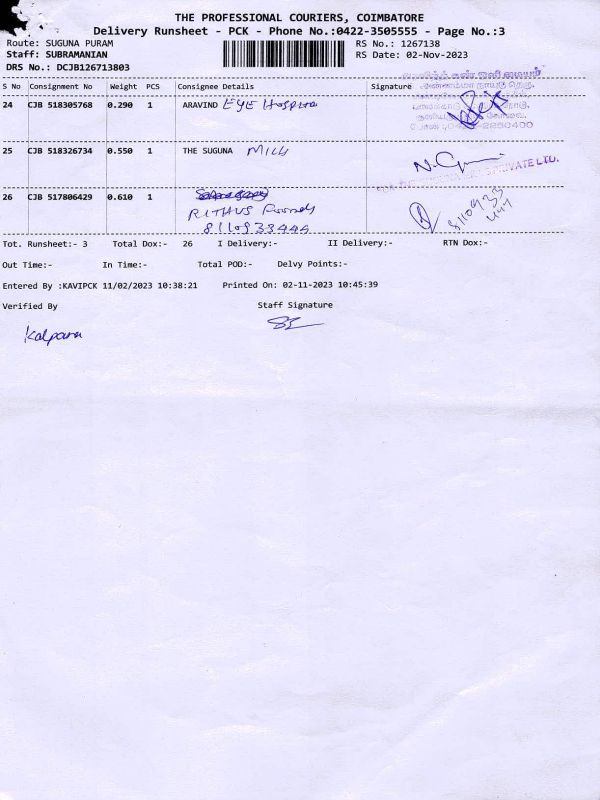 THE PROFESSIONAL COURIERS, COIMBATORE
Delivery Runsheet - PCK - Phone No.:0422-3505555 - Page No.:3
Route: SUGUNA PURAM RS No.: 1267138
Staff: SUBRAMANIAN RS Date: 02-Nov-2023
DRS No.: DCJB126713803
S No Consignment No Weight PCS Consignee Details Signature
24 CJB 518305768 0.290 1 ARAVIND EYE Hospital
25 CJB 518326734 0.550 1 THE SUGUNA Mills
PRIVATE LTD.
26 CJB 517806429 0.610 1
RITHUS
8110933444
Tot. Runsheet:- 3 Total Dox:- 26 I Delivery:- II Delivery:- RTN Dox:-
Out Time:- In Time:- Total POD:- Delvy Points:-
Entered By :KAVIPCK 11/02/2023 10:38:21 Printed On: 02-11-2023 10:45:39
Verified By Staff Signature
Kalpana